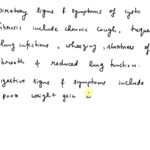 piratory signs & symptoms of cystic
fibrosis include chronic cough, freque
lung infections, wheezing, shortness of
breath & reduced lung function.
igestive signs & symptoms include
poor weight gain &